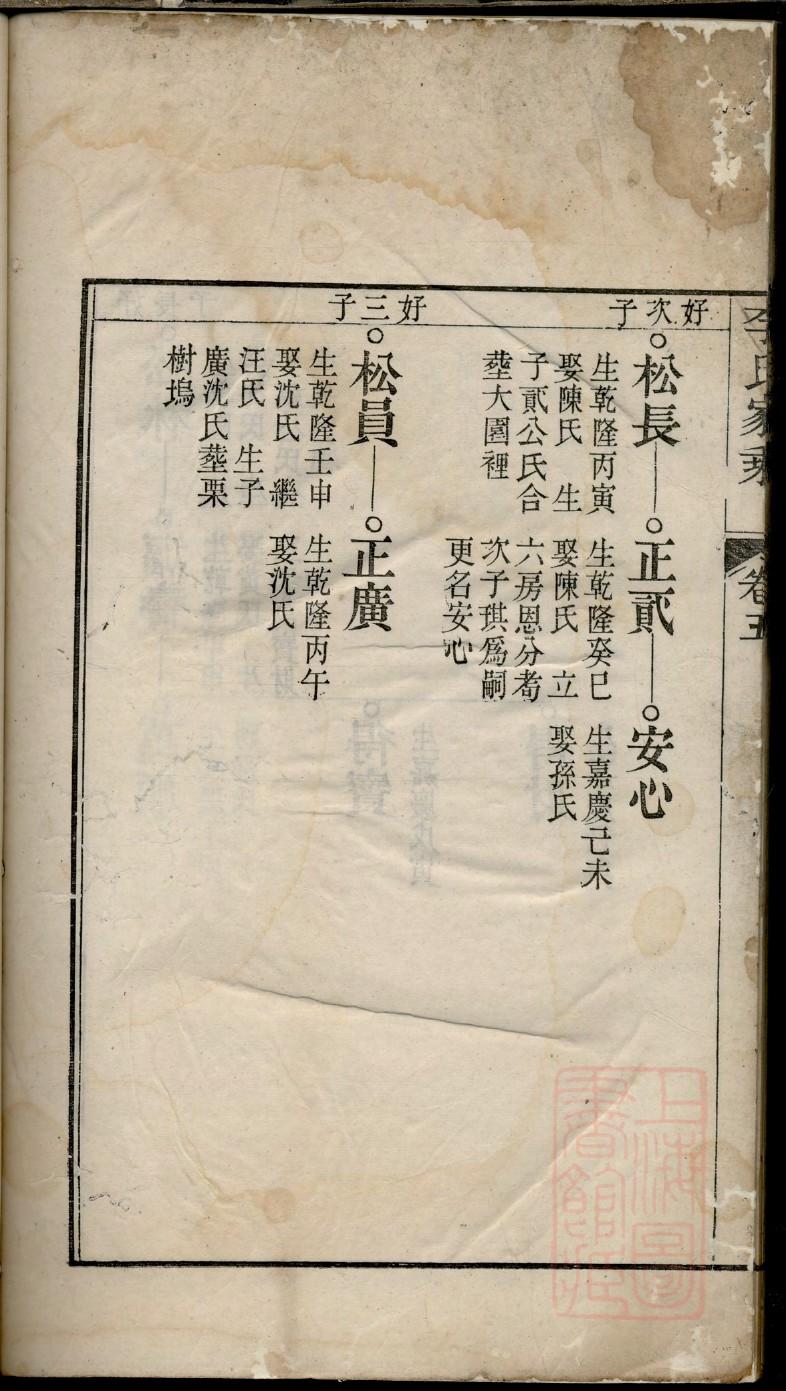 李氏家乘
卷五
好次子
松長
生乾隆丙寅
娶陳氏 生
子貳公氏合
塟大園裡
正貳
生乾隆癸巳
娶陳氏 立
六房恩分耉
次子琪爲嗣
更名安心
安心
生嘉慶己未
娶孫氏
好三子
松員
生乾隆壬申
娶沈氏 繼
汪氏 生子
廣沈氏塟栗
樹塢
正廣
生乾隆丙午
娶沈氏
上海圖
書館藏